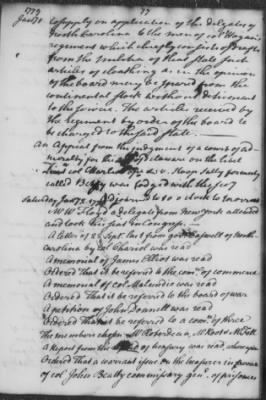 1779 77
Jany.
to supply on application of the delegates of
North Carolina to the men of col Hogan's
regiment which chiefly consists of drafts
from the militia of that state such
articles of cloathing as in the opinion
of the board may be spared from the
continental stock without detriment
to the service. The articles received by
the regiment by order of the board to
be charged to the said state.
An Appeal from the judgment of a court of ad-
miralty for the Delaware on the libel
sloop Sally formerly
called Betsy was lodged with the secy
Adjourned to 10 o'clock to morrow
Saturday Jany
Mr W Floyd a delegate from New York attended
and took his seat in Congress.
A letter of 25 Sept. last from govr Caswell of North
Carolina by col Chariol was read
A memorial of James Elliot was read
Ordered That it be referred to the comee of commerce
A memorial of col Malmedie was read
Ordered That it be referred to the board of war.
A petition of John Donnell was read
Ordered That it be referred to a comee of three
The members chosen Mr Roberdeau, Mr Root & Mr
A report from the of treasury was read, whereupon
Ordered That a warrant issue on the treasurer in favour
of col. John Beatty commissary genl. of prisoners